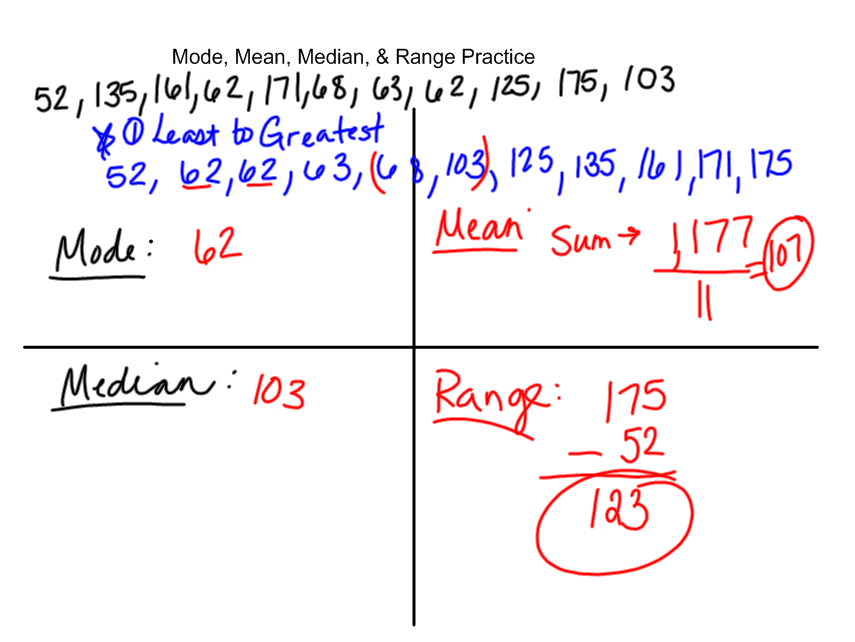 Mode, Mean, Median, & Range Practice
52, 135, 161, 62, 171, 68, 63, 62, 125, 175, 103
* ① Least to Greatest
52, 62, 62, 63, (68, 103), 125, 135, 161, 171, 175
Mode: 62
Mean: Sum → 1,177
= 107
11
Median: 103
Range: 175
- 52
123